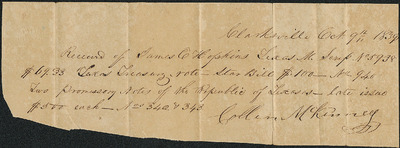 Clarksville Oct 9th 1839
Received of James D Hopkins Texas M. Scrip No 5938
$69.33 Texas Treasury note - Star Bill $100 - No 940
Two Promissory Notes of the Republic of Texas - late issue
$500 each - Nos 342 & 343
Collin McKinney